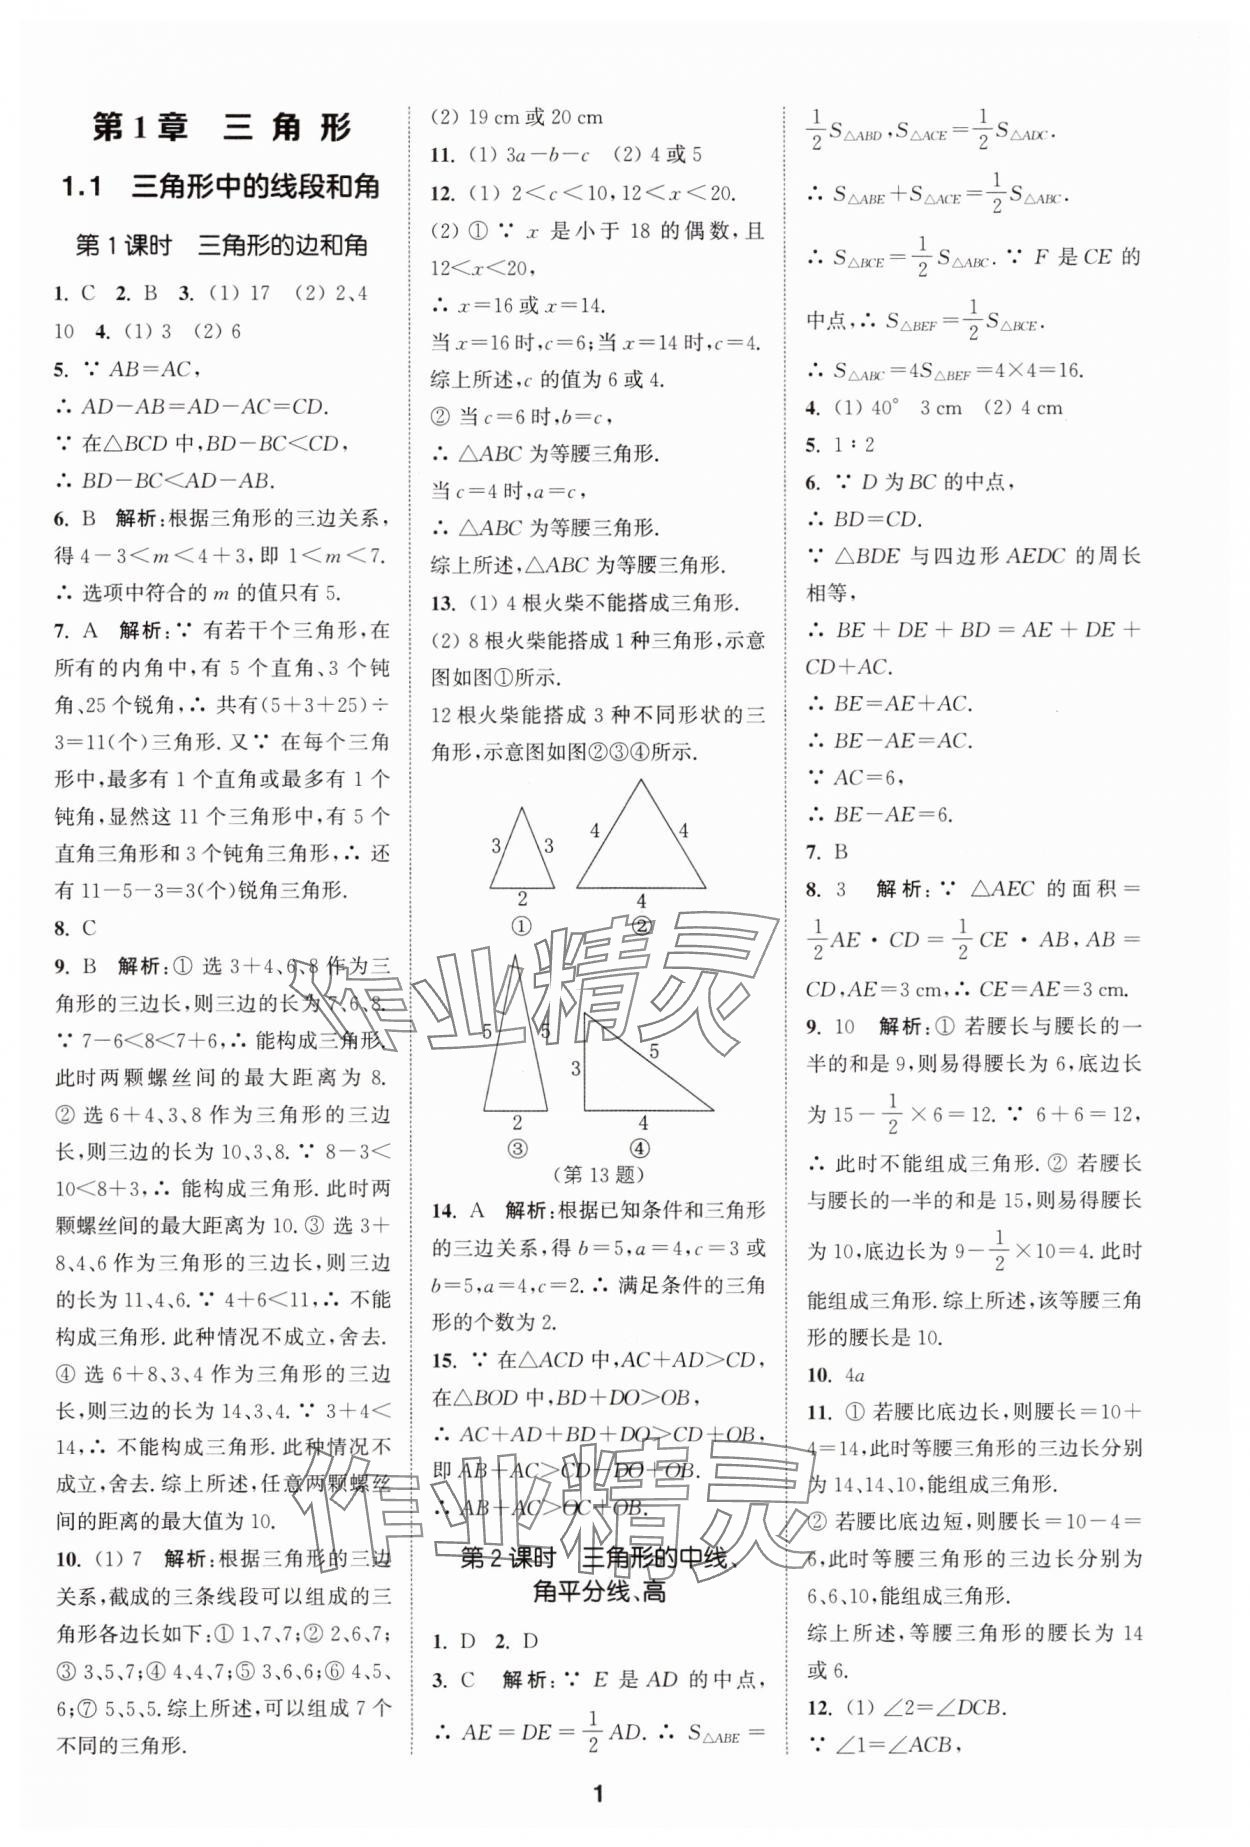 第1章 三角形
1.1 三角形中的线段和角
第1课时 三角形的边和角
1. C 2. B 3. (1) 17 (2) 2、4
10 4. (1) 3 (2) 6
5. ∵ AB=AC,
∴ AD-AB=AD-AC=CD.
∵ 在△BCD中,BD-BC<CD,
∴ BD-BC<AD-AB.
6. B 解析:根据三角形的三边关系,
得4-3<m<4+3,即1<m<7.
∴ 选项中符合的m的值只有5.
7. A 解析:∵ 有若干个三角形,在
所有的内角中,有5个直角、3个钝
角、25个锐角,∴ 共有(5+3+25)÷
3=11(个)三角形.又∵ 在每个三角
形中,最多有1个直角或最多有1个
钝角,显然这11个三角形中,有5个
直角三角形和3个钝角三角形,∴ 还
有11-5-3=3(个)锐角三角形.
8. C
9. B 解析:① 选3+4、6、8作为三
角形的三边长,则三边的长为7、6、8.
∵ 7-6<8<7+6,∴ 能构成三角形.
此时两颗螺丝间的最大距离为8.
② 选6+4、3、8作为三角形的三边
长,则三边的长为10、3、8.∵ 8-3<
10<8+3,∴ 能构成三角形.此时两
颗螺丝间的最大距离为10.③ 选3+
8、4、6作为三角形的三边长,则三边
的长为11、4、6.∵ 4+6<11,∴ 不能
构成三角形.此种情况不成立,舍去.
④ 选6+8、3、4作为三角形的三边
长,则三边的长为14、3、4.∵ 3+4<
14,∴ 不能构成三角形.此种情况不
成立,舍去.综上所述,任意两颗螺丝
间的距离的最大值为10.
10. (1) 7 解析:根据三角形的三边
关系,截成的三条线段可以组成的三
角形各边长如下:① 1、7、7;② 2、6、7;
③ 3、5、7;④ 4、4、7;⑤ 3、6、6;⑥ 4、5、
6;⑦ 5、5、5.综上所述,可以组成7个
不同的三角形.
(2) 19 cm或20 cm
11. (1) 3a-b-c (2) 4或5
12. (1) 2<c<10,12<x<20.
(2) ① ∵ x是小于18的偶数,且
12<x<20,
∴ x=16或x=14.
当x=16时,c=6;当x=14时,c=4.
综上所述,c的值为6或4.
② 当c=6时,b=c,
∴ △ABC为等腰三角形.
当c=4时,a=c,
∴ △ABC为等腰三角形.
综上所述,△ABC为等腰三角形.
13. (1) 4根火柴不能搭成三角形.
(2) 8根火柴能搭成1种三角形,示意
图如图①所示.
12根火柴能搭成3种不同形状的三
角形,示意图如图②③④所示.
3 3 2 ①
4 4 4 ②
5 5 2 ③
3 5 4 ④
(第13题)
14. A 解析:根据已知条件和三角形
的三边关系,得b=5,a=4,c=3或
b=5,a=4,c=2.∴ 满足条件的三角
形的个数为2.
15. ∵ 在△ACD中,AC+AD>CD,
在△BOD中,BD+DO>OB,
∴ AC+AD+BD+DO>CD+OB,
即AB+AC>CD-DO+OB.
∴ AB+AC>OC+OB.
第2课时 三角形的中线、
角平分线、高
1. D 2. D
3. C 解析:∵ E是AD的中点,
∴ AE=DE=1/2 AD.∴ S△ABE=
1/2 S△ABD,S△ACE=1/2 S△ADC.
∴ S△ABE+S△ACE=1/2 S△ABC.
∴ S△BCE=1/2 S△ABC.∵ F是CE的
中点,∴ S△BEF=1/2 S△BCE.
∴ S△ABC=4S△BEF=4×4=16.
4. (1) 40° 3 cm (2) 4 cm
5. 1∶2
6. ∵ D为BC的中点,
∴ BD=CD.
∵ △BDE与四边形AEDC的周长
相等,
∴ BE+DE+BD=AE+DE+
CD+AC.
∴ BE=AE+AC.
∴ BE-AE=AC.
∵ AC=6,
∴ BE-AE=6.
7. B
8. 3 解析:∵ △AEC的面积=
1/2 AE·CD=1/2 CE·AB,AB=
CD,AE=3 cm,∴ CE=AE=3 cm.
9. 10 解析:① 若腰长与腰长的一
半的和是9,则易得腰长为6,底边长
为15-1/2×6=12.∵ 6+6=12,
∴ 此时不能组成三角形.② 若腰长
与腰长的一半的和是15,则易得腰长
为10,底边长为9-1/2×10=4.此时
能组成三角形.综上所述,该等腰三角
形的腰长是10.
10. 4a
11. ① 若腰比底边长,则腰长=10+
4=14,此时等腰三角形的三边长分别
为14、14、10,能组成三角形.
② 若腰比底边短,则腰长=10-4=
6,此时等腰三角形的三边长分别为
6、6、10,能组成三角形.
综上所述,等腰三角形的腰长为14
或6.
12. (1) ∠2=∠DCB.
∵ ∠1=∠ACB,
作业精灵
作业精灵
1